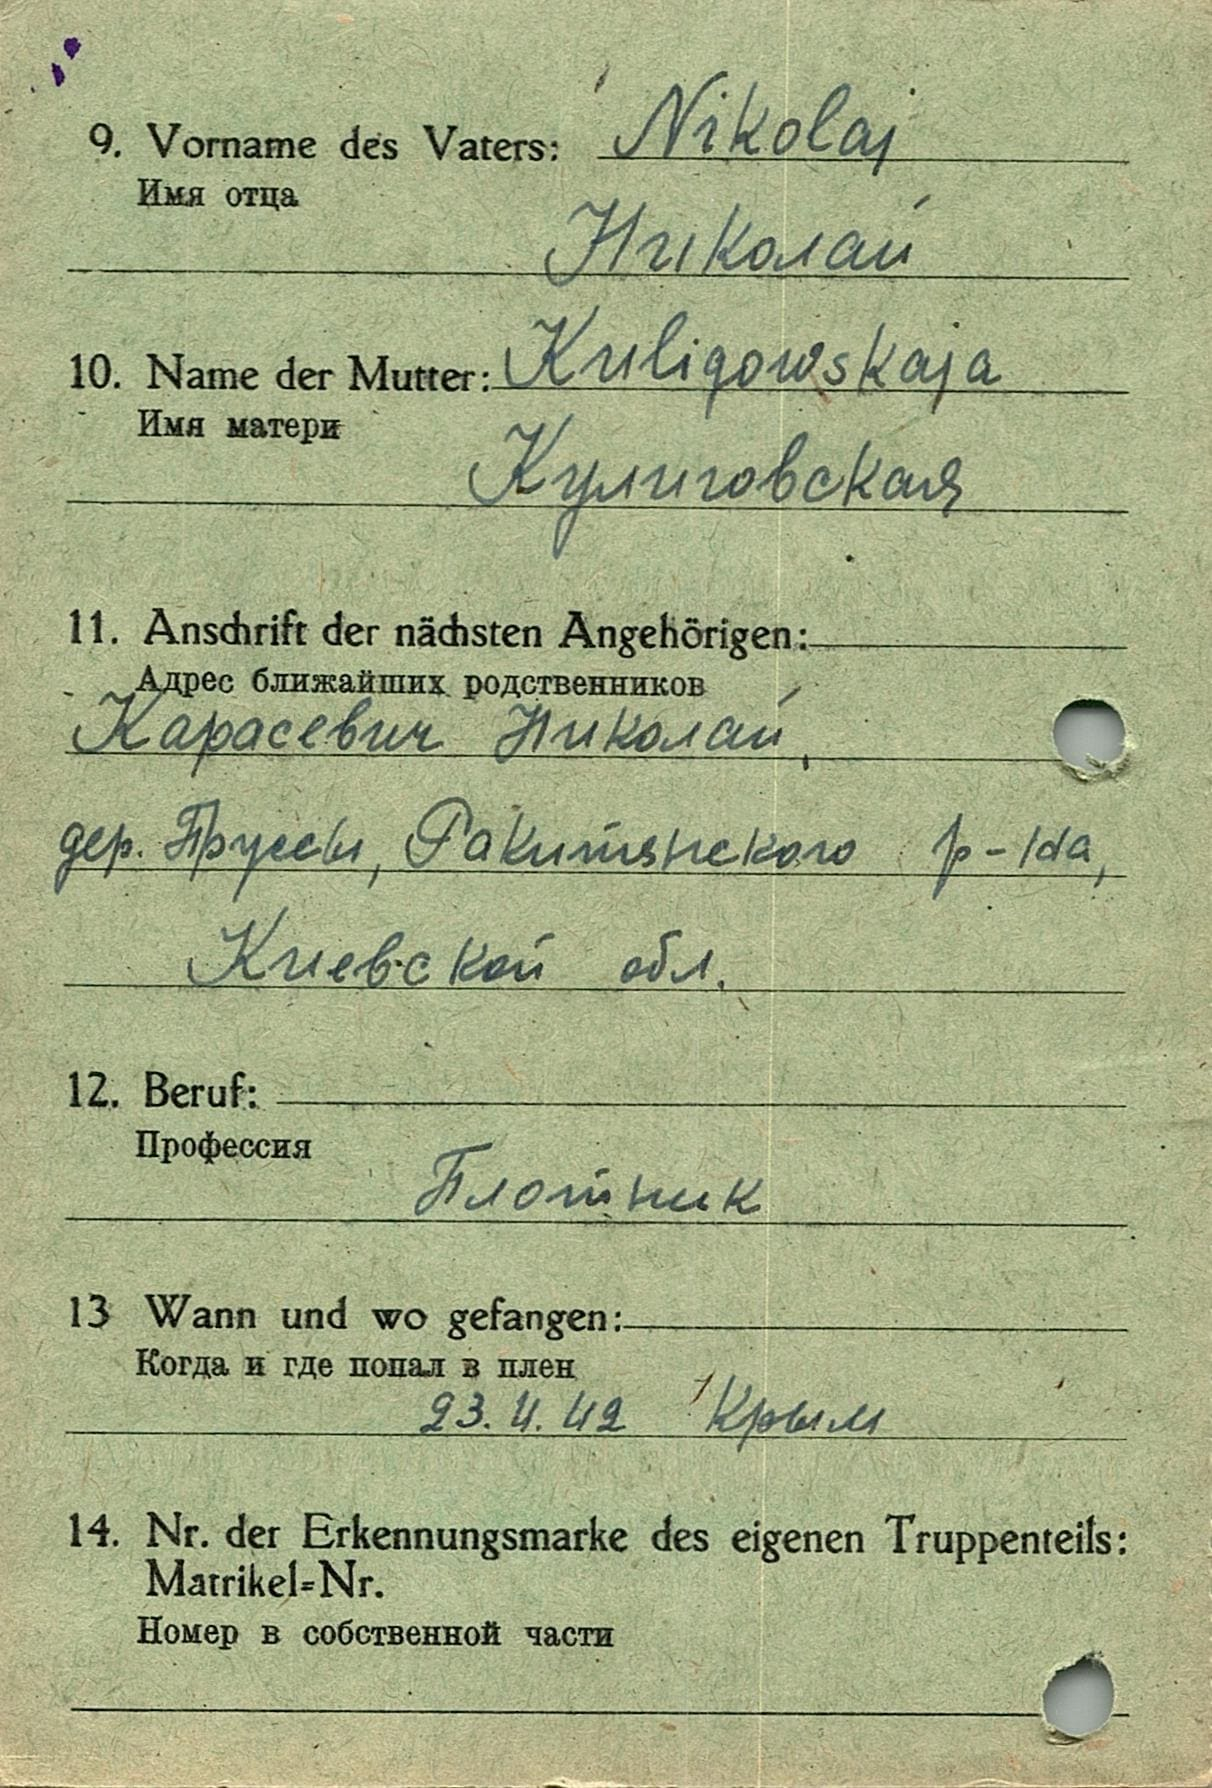 9. Vorname des Vaters: Nikolaj
Имя отца
Николай
10. Name der Mutter: Kuligowskaja
Имя матери
Кулиговская
11. Anschrift der nächsten Angehörigen:
Адрес ближайших родственников
Карасевич Николай,
дер. Пруссы, Ракитянского р-на,
Киевской обл.
12. Beruf:
Профессия
Плотник
13 Wann und wo gefangen:
Когда и где попал в плен
23. 4. 42 Крым
14. Nr. der Erkennungsmarke des eigenen Truppenteils:
Matrikel=Nr.
Номер в собственной части